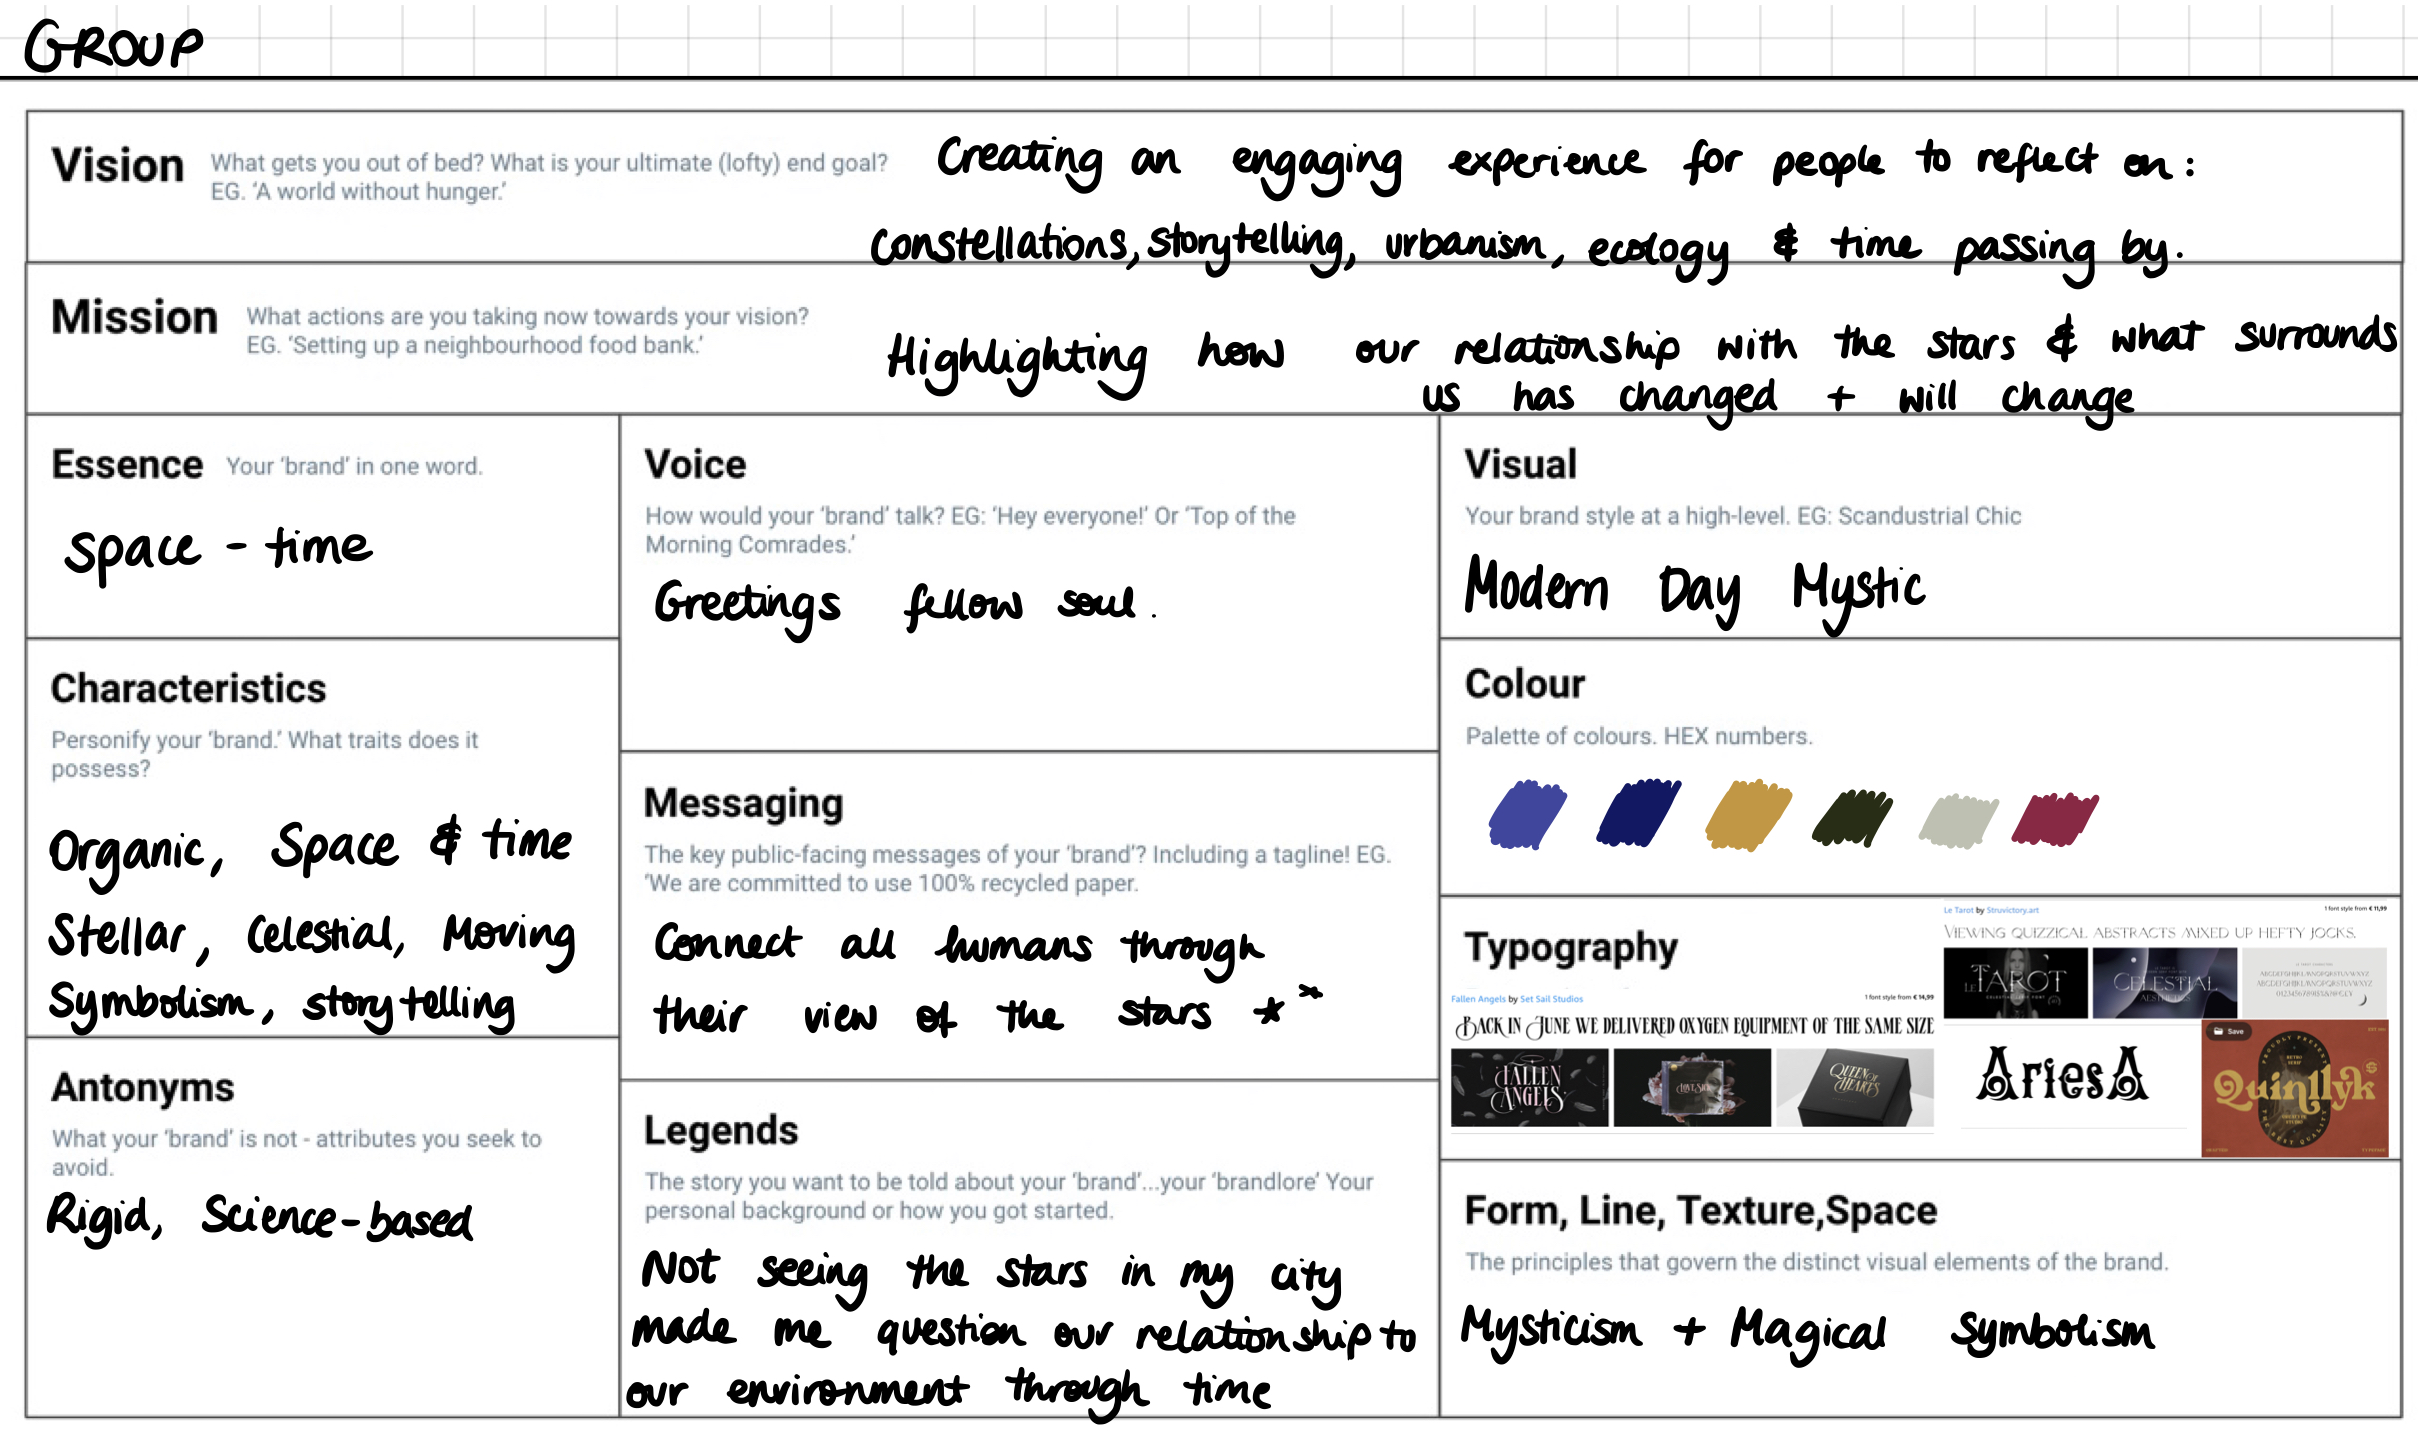 GROUP
Vision
What gets you out of bed? What is your ultimate (lofty) end goal?
EG. 'A world without hunger.'
Creating an engaging experience for people to reflect on:
constellations, storytelling, urbanism, ecology & time passing by.
Mission
What actions are you taking now towards your vision?
EG. 'Setting up a neighbourhood food bank.'
Highlighting how our relationship with the stars & what surrounds
us has changed + will change
Essence
Your 'brand' in one word.
Space - time
Characteristics
Personify your 'brand.' What traits does it
possess?
Organic, Space & time
Stellar, Celestial, Moving
Symbolism, storytelling
Antonyms
What your 'brand' is not - attributes you seek to
avoid.
Rigid, Science-based
Voice
How would your 'brand' talk? EG: 'Hey everyone!' Or 'Top of the
Morning Comrades.'
Greetings fellow soul.
Messaging
The key public-facing messages of your 'brand'? Including a tagline! EG.
'We are committed to use 100% recycled paper.
Connect all humans through
their view of the stars
Legends
The story you want to be told about your 'brand'...your 'brandlore' Your
personal background or how you got started.
Not seeing the stars in my city
made me question our relationship to
our environment through time
Visual
Your brand style at a high-level. EG: Scandustrial Chic
Modern Day Mystic
Colour
Palette of colours. HEX numbers.
Typography
Le Tarot by Struvictory.art
1 font style from € 11,99
VIEWING QUIZZICAL ABSTRACTS MIXED UP HEFTY JOCKS.
LE TAROT
CELESTIAL
AESTHETICS
Fallen Angels by Set Sail Studios
1 font style from € 14,99
BACK IN JUNE WE DELIVERED OXYGEN EQUIPMENT OF THE SAME SIZE
FALLEN
ANGELS
LOVE SICK
QUEEN OF
HEARTS
AriesA
Save
Quinllyk
Form, Line, Texture,Space
The principles that govern the distinct visual elements of the brand.
Mysticism + Magical Symbolism